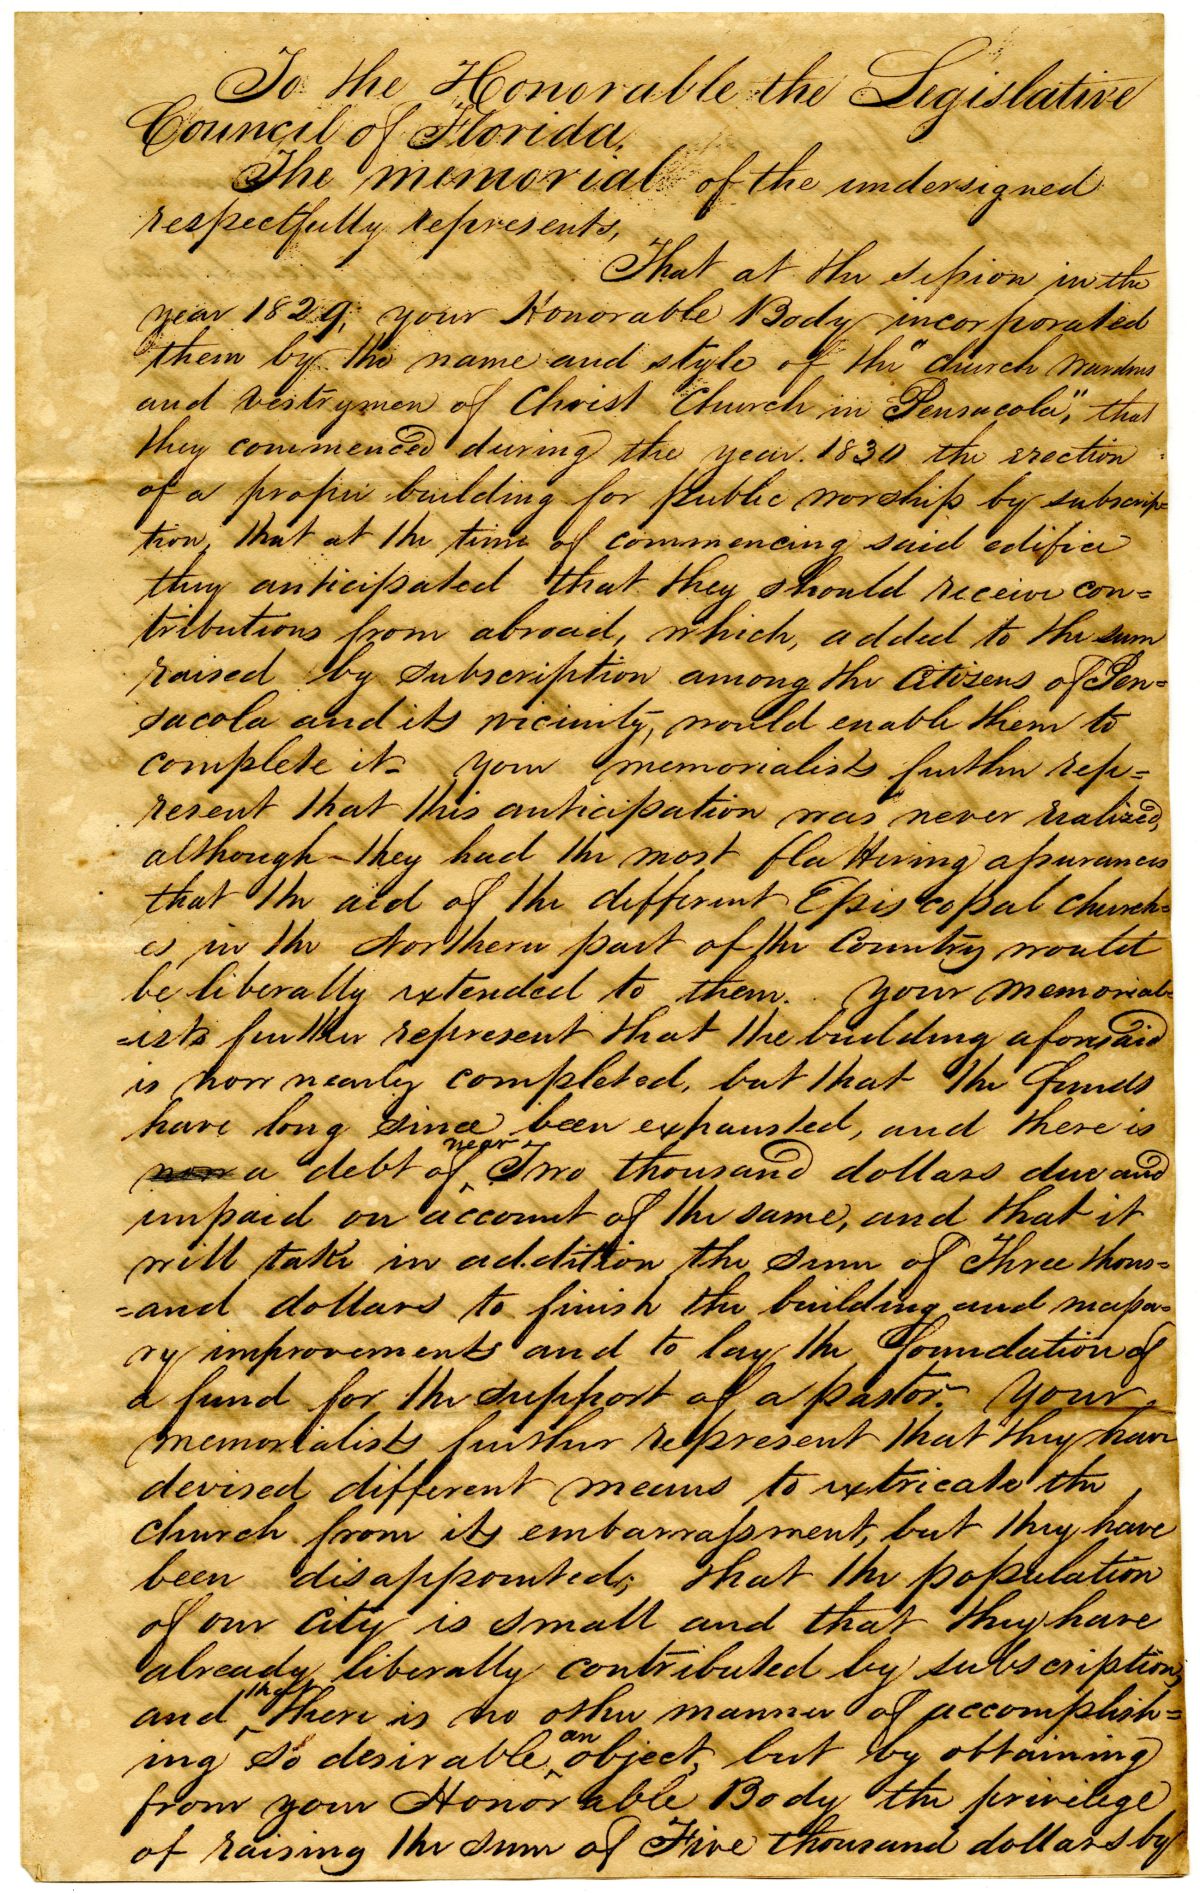 To the Honorable the Legislative
Council of Florida,
The memorial of the undersigned
respectfully represents,
That at the session in the
year 1829, your Honorable Body incorporated
them by the name and style of the "church wardens
and vestrymen of Christ Church in Pensacola", that
they commenced during the year 1830 the erection
of a proper building for public worship by subscrip=
tion, that at the time of commencing said edifice
they anticipated that they should receive con=
tributions from abroad, which, added to the sum
raised by subscription among the citizens of Pen=
sacola and its vicinity, would enable them to
complete it= your memorialists further rep=
resent that this anticipation was never realized,
although they had the most flattering assurances
that the aid of the different Episcopal church=
es in the Northern part of the Country would
be liberally extended to them. your memorial=
=ists further represent that the building aforesaid
is now nearly completed, but that the funds
have long since been exhausted, and there is
now a debt of near Two thousand dollars due and
unpaid on account of the same, and that it
will take in addition the sum of Three thous=
=and dollars to finish the building and
improvements and to lay the foundation of
a fund for the support of a pastor. your
memorialists further represent that they have
devised different means to extricate the
church from its embarrassment, but they have
been disappointed; that the population
of our city is small and that they have
already liberally contributed by subscription,
and that there is no other manner of accomplish=
ing so desirable an object, but by obtaining
from your Honorable Body the privilege
of raising the sum of Five thousand dollars by